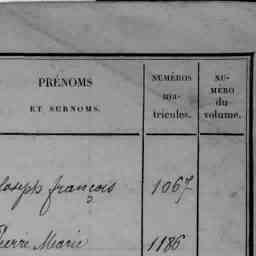 PRÉNOMS
ET SURNOMS.
NUMÉROS
ma-
tricules.
NU-
MÉRO
du
volume.
Joseph françois 1067
Pierre Marie 1186